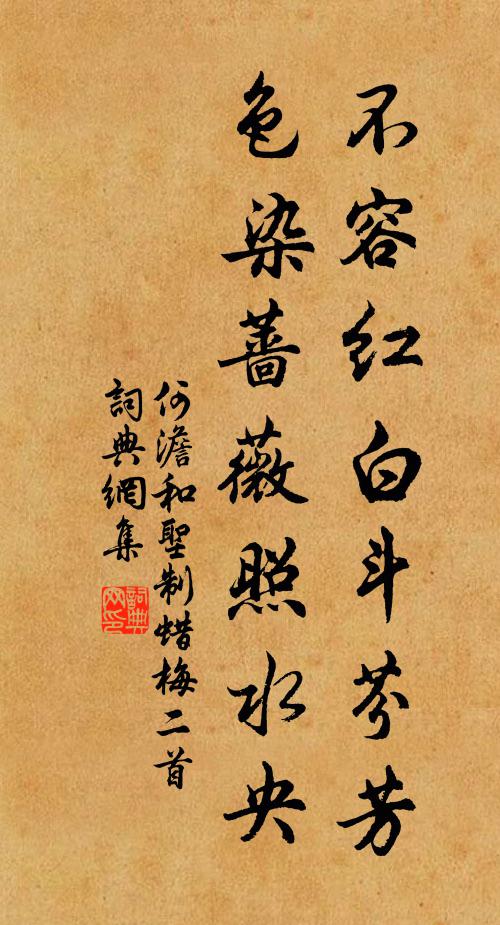 不容红白斗芬芳
色染蔷薇照水央
何澹和聖制蜡梅二首
詞典網集
詞典网印